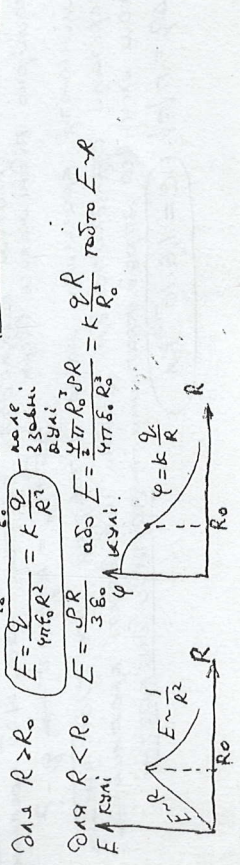 для R > R₀ E = q/4πε₀R² = k q/R² – поле ззовні кулі
для R < R₀ E = ρR/3ε₀ або E = 4/3 π R₀³ ρR/4πε₀R₀³ = k qR/R₀³ тобто E~R
E кулі
E~R
E~1/R²
R₀
R
φ кулі.
φ = k q/R
R₀
R